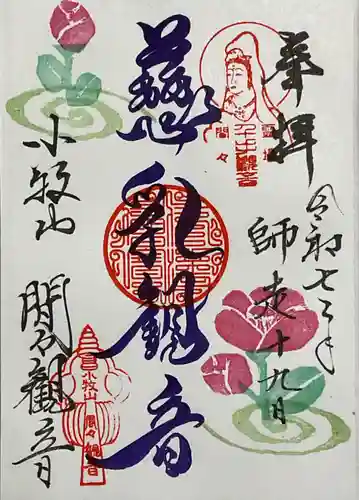 奉拝
令和七年
師走十九日
慈乳観音
小牧山
間々観音
霊場
間々
小牧山
間々観音